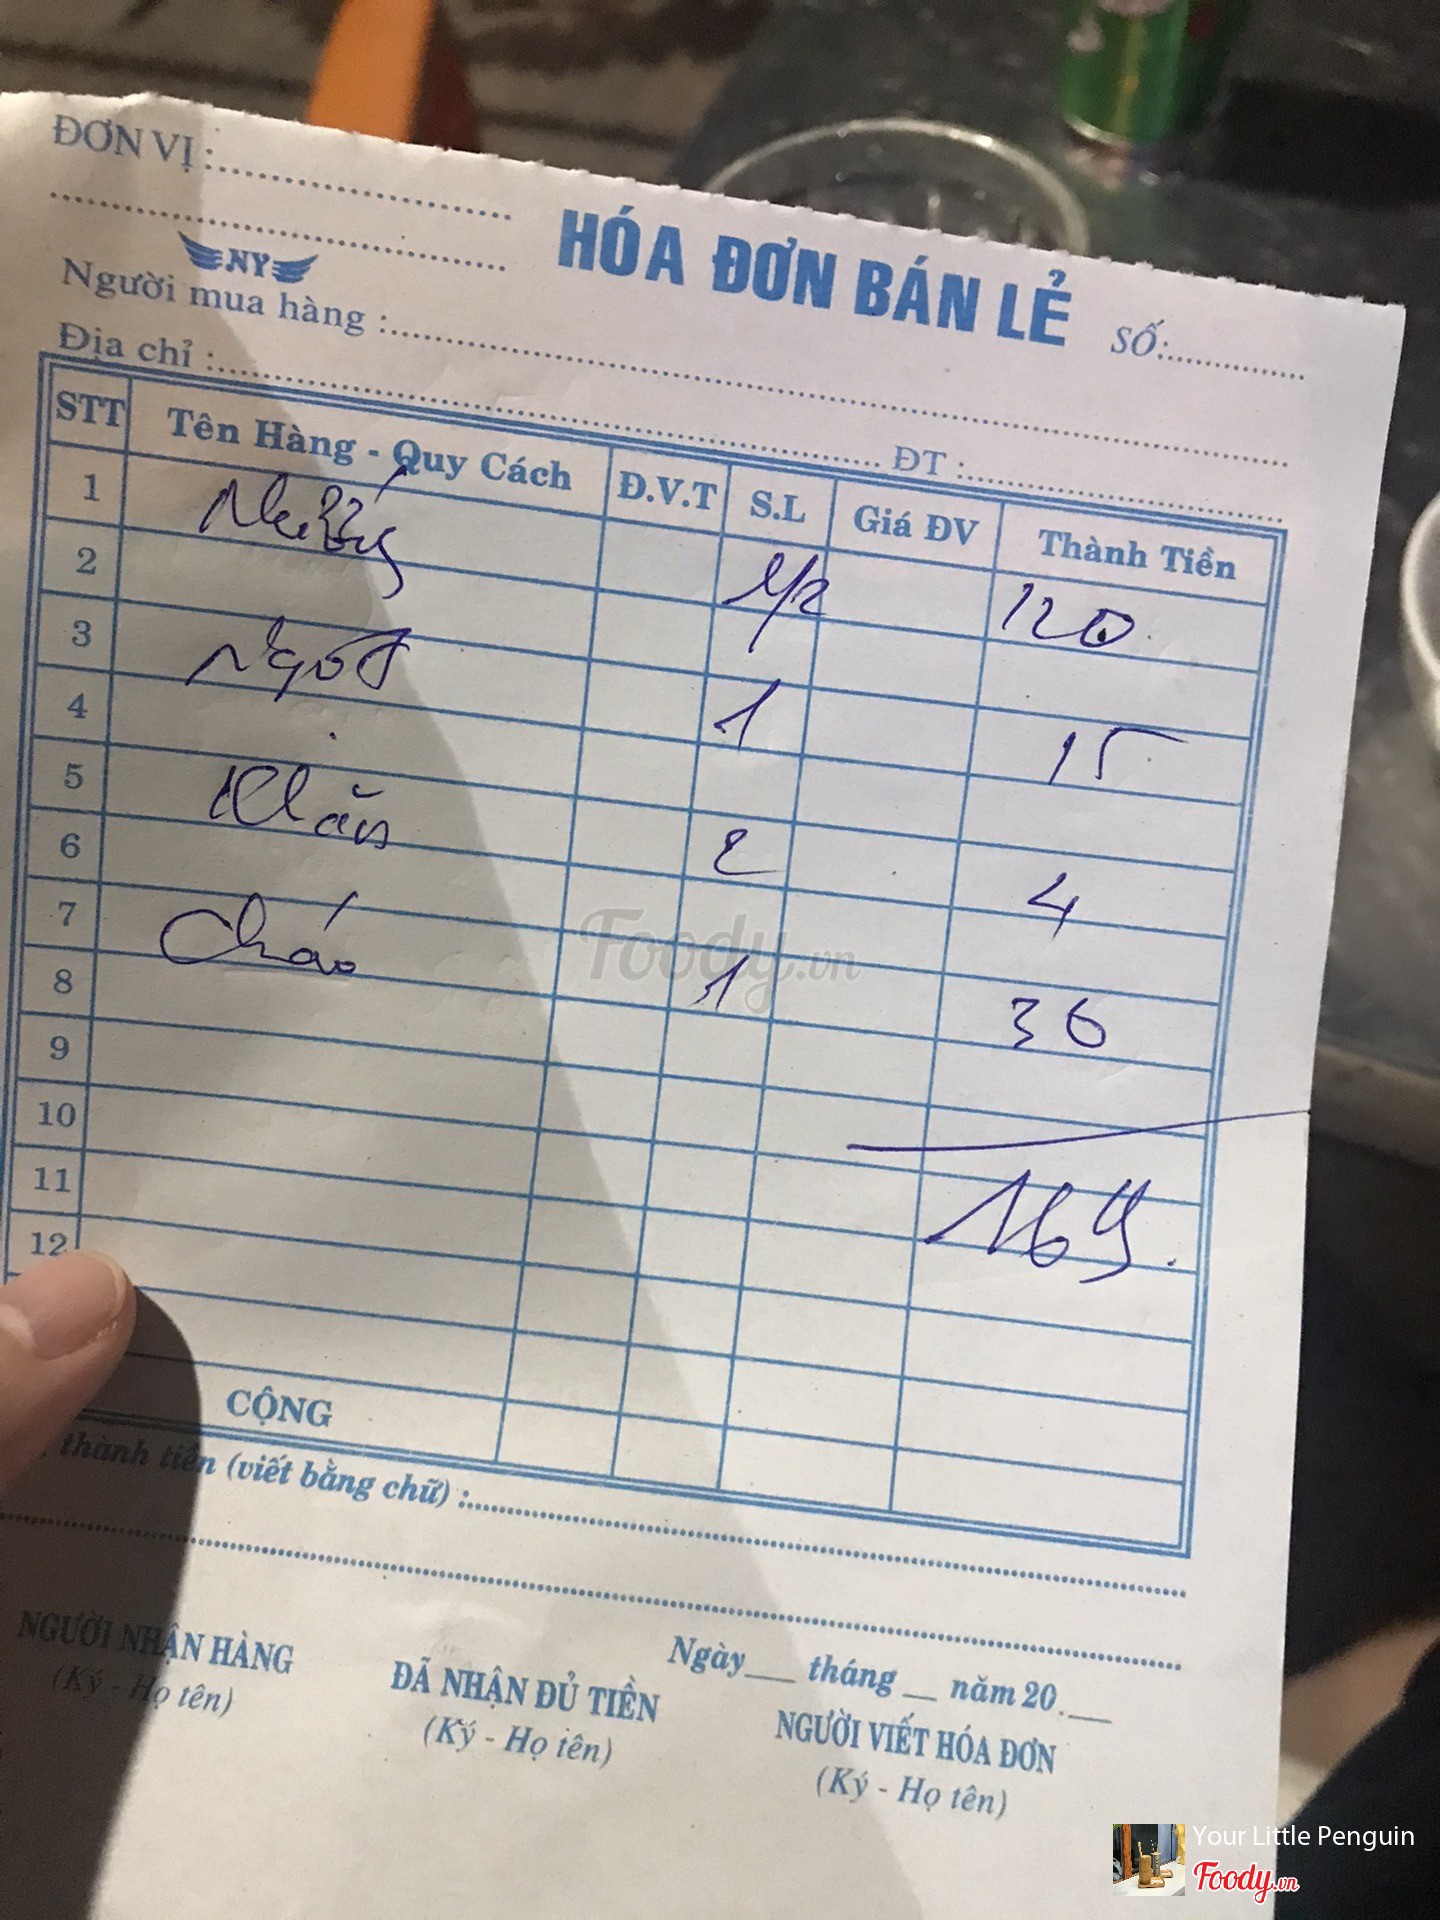 ĐƠN VỊ :
NY
HÓA ĐƠN BÁN LẺ
SỐ:
Người mua hàng :
Địa chỉ :
ĐT :
STT Tên Hàng - Quy Cách Đ.V.T S.L Giá ĐV Thành Tiền
1 Nướng 1/2 120
2
3 Ngọt 1 15
4
5 Khăn 2 4
6
7 Cháo 1 30
8
9
10
11 169
12
CỘNG
thành tiền (viết bằng chữ) :
Ngày__ tháng __ năm 20.__
NGƯỜI NHẬN HÀNG ĐÃ NHẬN ĐỦ TIỀN NGƯỜI VIẾT HÓA ĐƠN
(Ký - Họ tên) (Ký - Họ tên) (Ký - Họ tên)
Foody.vn
Your Little Penguin
Foody.vn